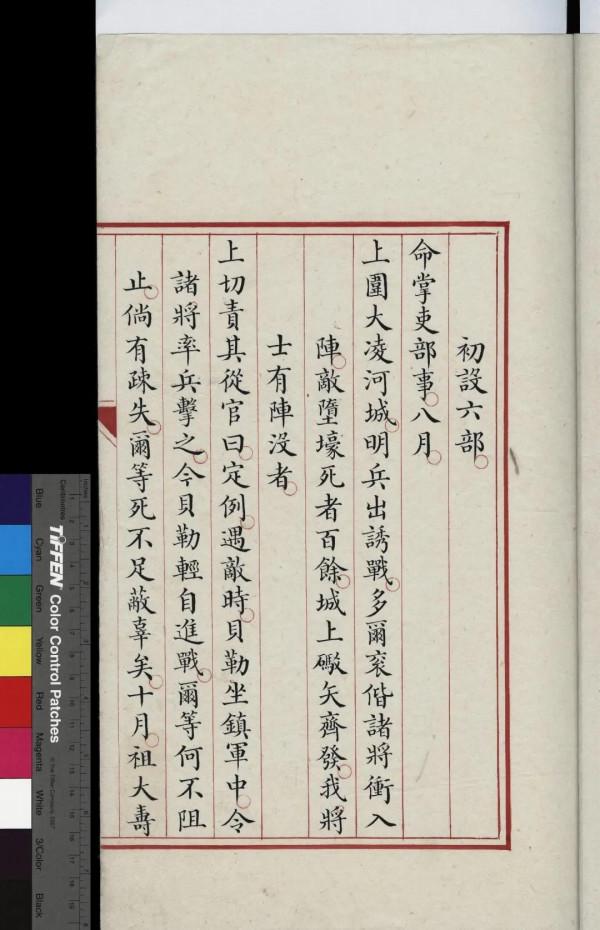 初設六部
命掌吏部事八月
上圍大凌河城明兵出誘戰多爾衮偕諸將衝入
陣敵墮壕死者百餘城上礮矢齊發我將
士有陣没者
上切責其從官曰定例遇敵時貝勒坐鎮軍中令
諸將率兵擊之今貝勒輕自進戰爾等何不阻
止倘有疎失爾等死不足蔽辜矣十月祖大壽
TIFFEN Color Control Patches
Centimetres
Inches
Blue
Cyan
Green
Yellow
Red
Magenta
White
3/Color
Black